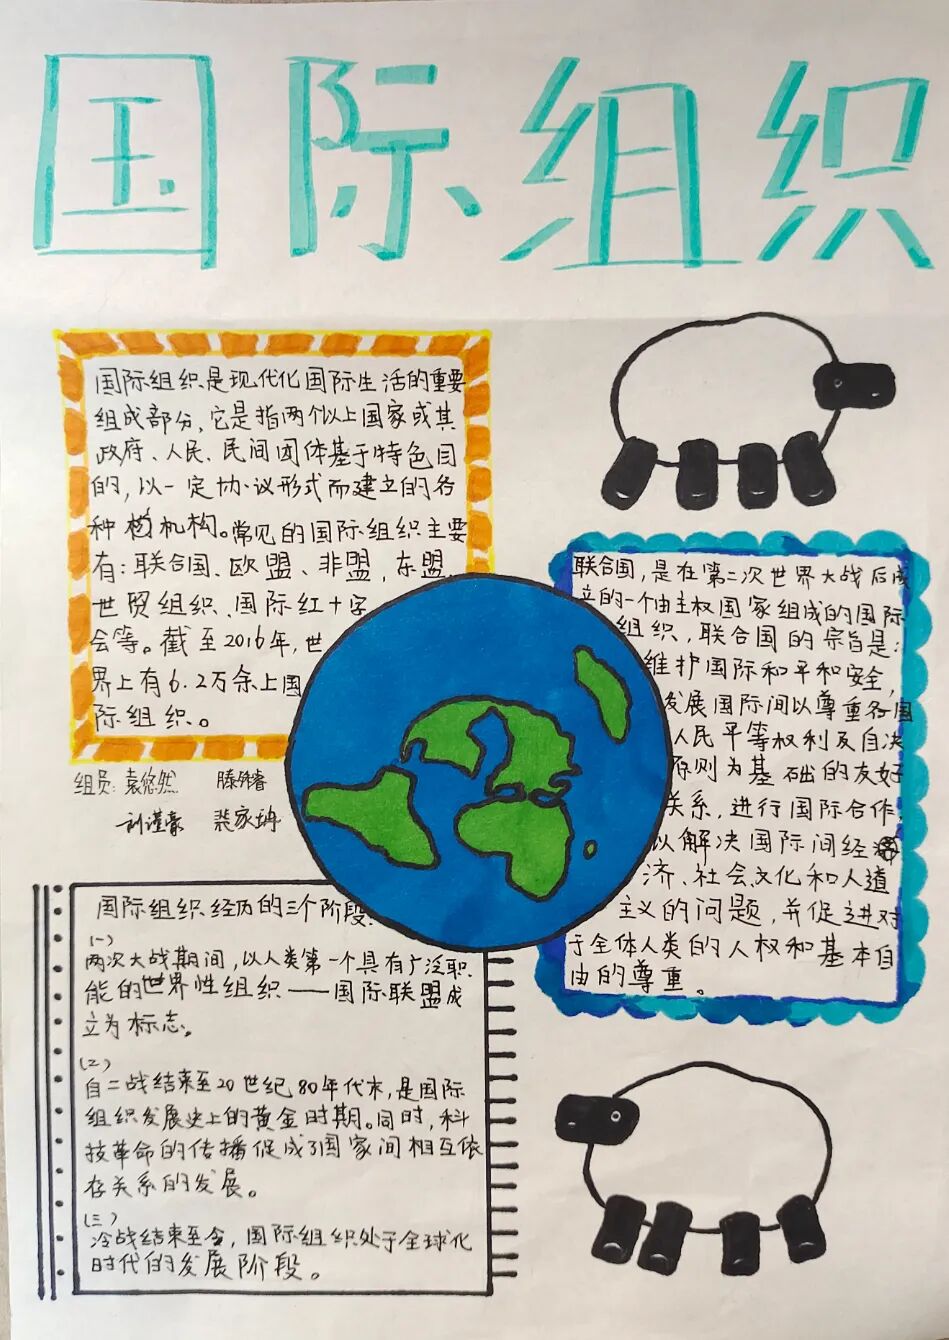 国际组织
国际组织是现代化国际生活的重要
组成部分，它是指两个以上国家或其
政府、人民、民间团体基于特色目
的，以一定协议形式而建立的各
种机构。常见的国际组织主要
有：联合国、欧盟、非盟，东盟、
世贸组织、国际红十字
会等。截至2016年，世
界上有6.2万余上国
际组织。
组员：袁悠然
刘谨豪 裴家坤
联合国，是在第二次世界大战后成
立的一个由主权国家组成的国际
组织，联合国的宗旨是：
维护国际和平和安全，
发展国际间以尊重各国
人民平等权利及自决
原则为基础的友好
关系，进行国际合作，
以解决国际间经
济、社会、文化和人道
主义的问题，并促进对
于全体人类的人权和基本自
由的尊重。
国际组织经历的三个阶段：
(一)
两次大战期间，以人类第一个具有广泛职
能的世界性组织——国际联盟成
立为标志。
(二)
自二战结束至20世纪80年代末，是国际
组织发展史上的黄金时期。同时，科
技革命的传播促成了国家间相互依
存关系的发展。
(三)
冷战结束至今，国际组织处于全球化
时代的发展阶段。